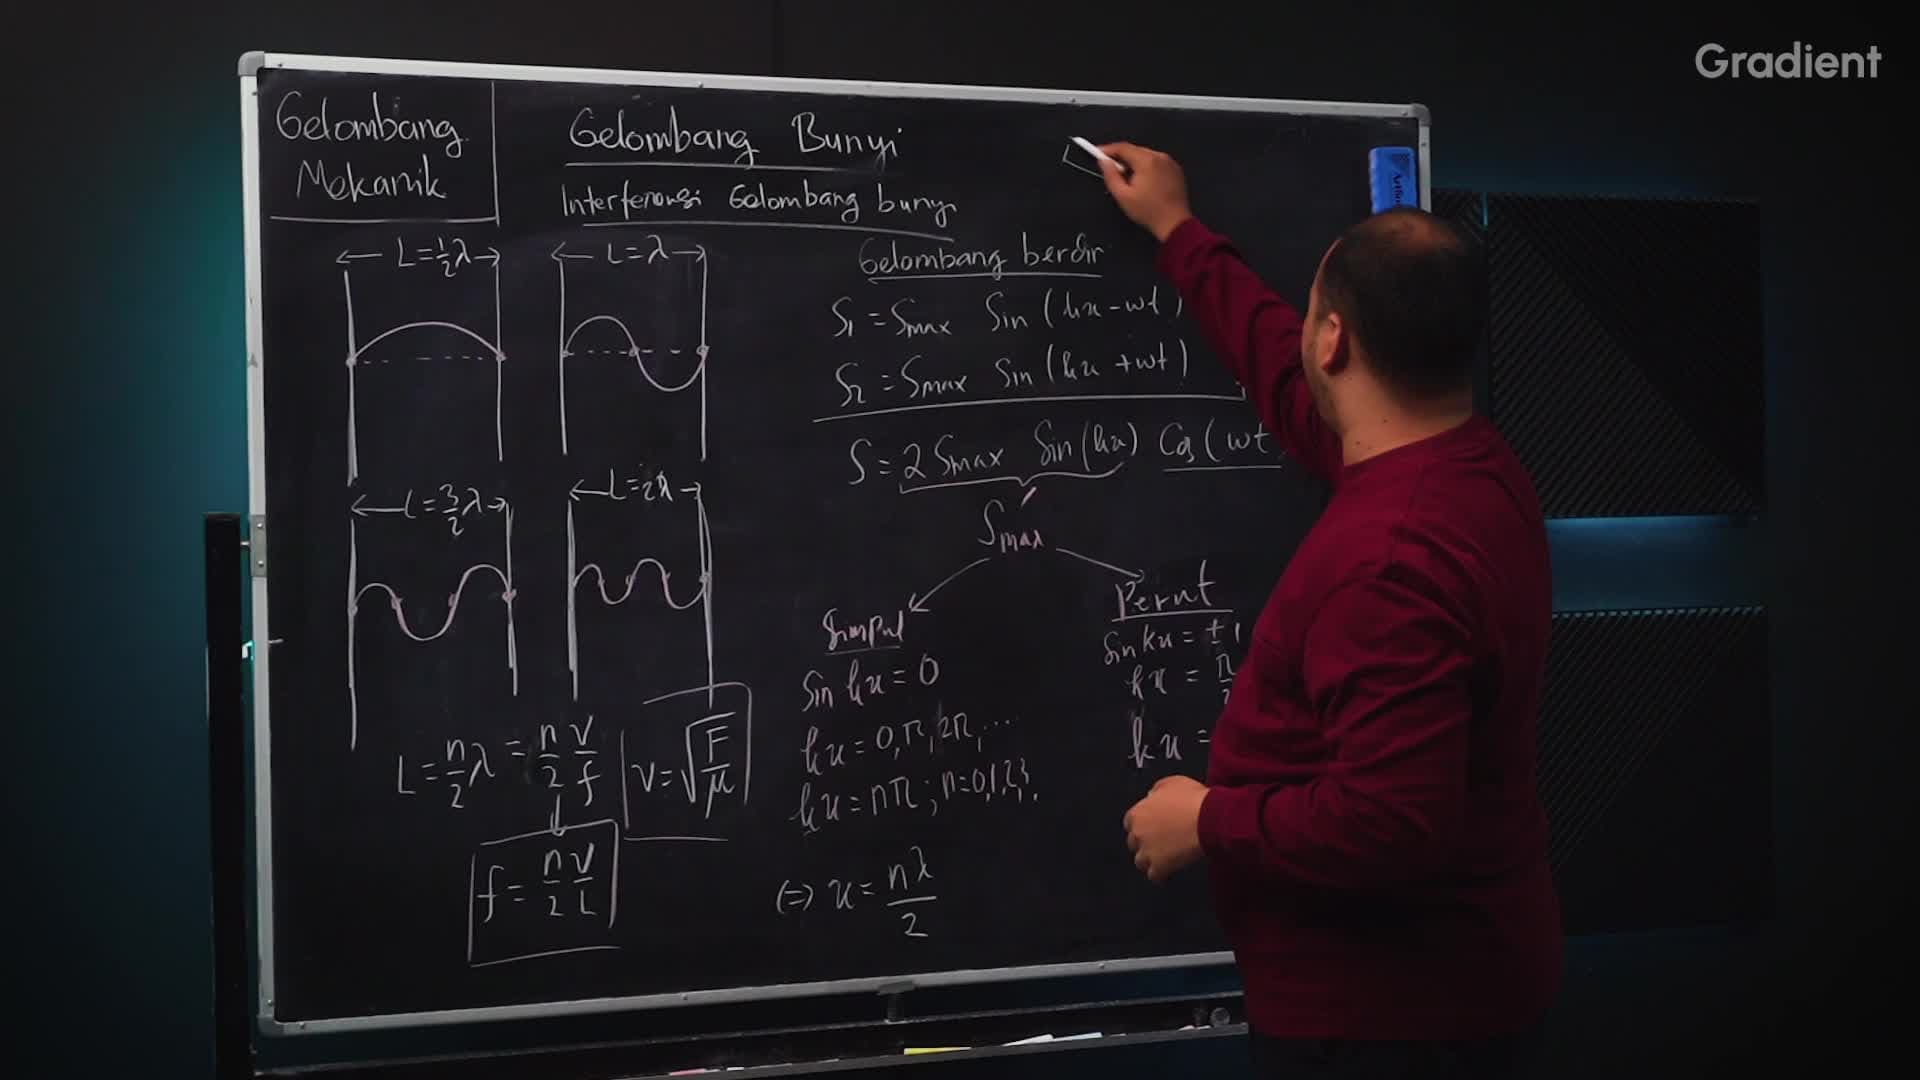 Gradient
Gelombang
Mekanik
Gelombang Bunyi
Interferensi Gelombang bunyi
L=½λ
L=λ
L=3/2 λ
L=2λ
L=n/2 λ = n/2 v/f
v=√(F/μ)
f=n/2 v/L
Gelombang berdiri
S₁ = Smax Sin (kx-wt)
S₂ = Smax Sin (kx+wt)
S=2Smax Sin(kx) Cos(wt
Smax
Simpul
Sin kx=0
kx=0,π,2π,...
kx=nπ; n=0,1,2,3,
⇔ x=nλ/2
Perut
Sin kx = ±1
kx = π/2
kx =